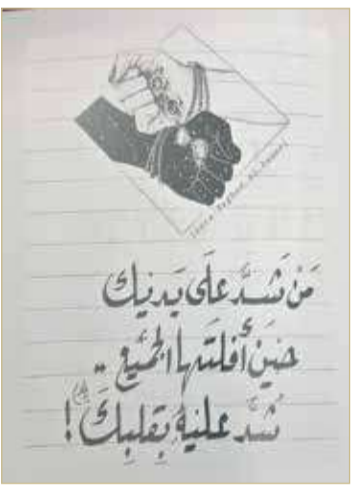 مَنْ شَدَّ عَلَى يَدَيْكَ
حِينَ أَفْلَتَهَا الْجَمِيعُ ..
شُدَّ عَلَيْهِ بِقَلْبِكَ !